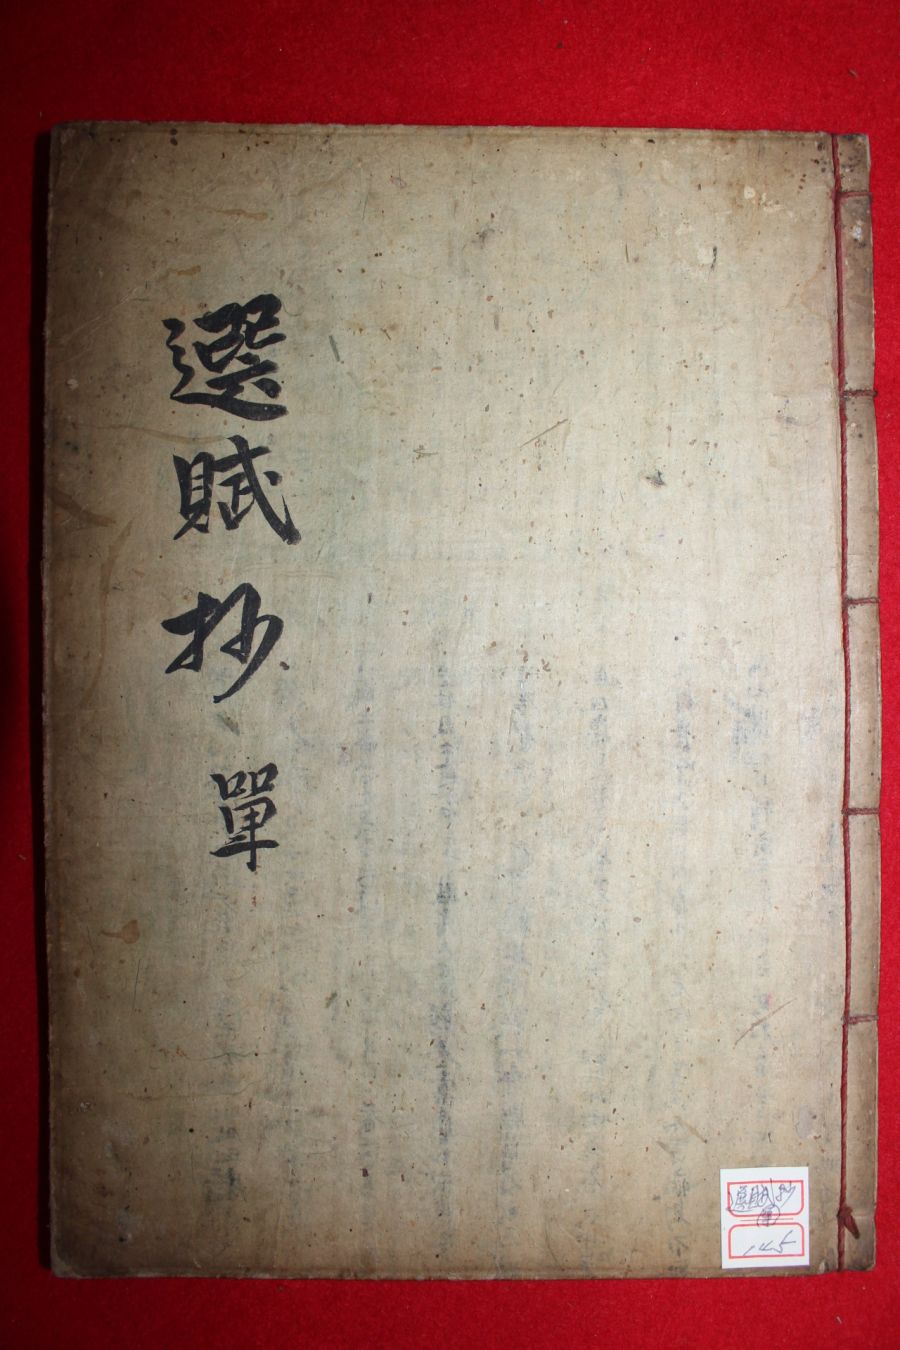 選賦抄 單
選賦抄
單
145